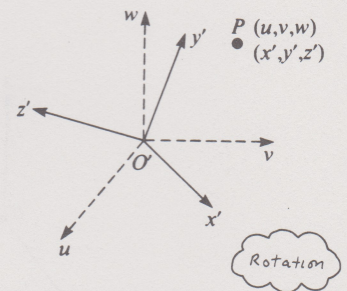 w
y′
P (u,v,w)
(x′,y′,z′)
z′
O′
v
x′
u
Rotation